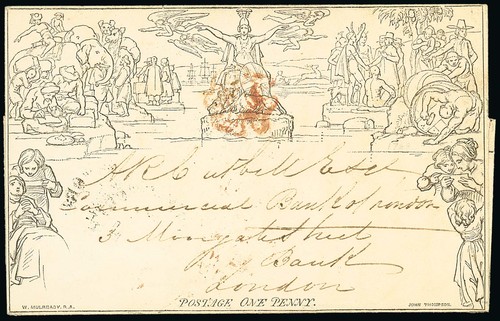 Esqr
Commercial Bank of London
3 Moorgate Street
Bank
London
POSTAGE ONE PENNY.
W. MULREADY, R.A.
JOHN THOMPSON.